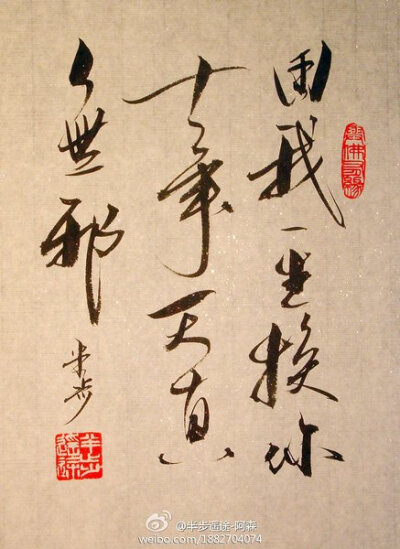 用我一生换你
十年天真
無邪
半步
半步遥途
@半步遥途-阿森
weibo.com/1882704074